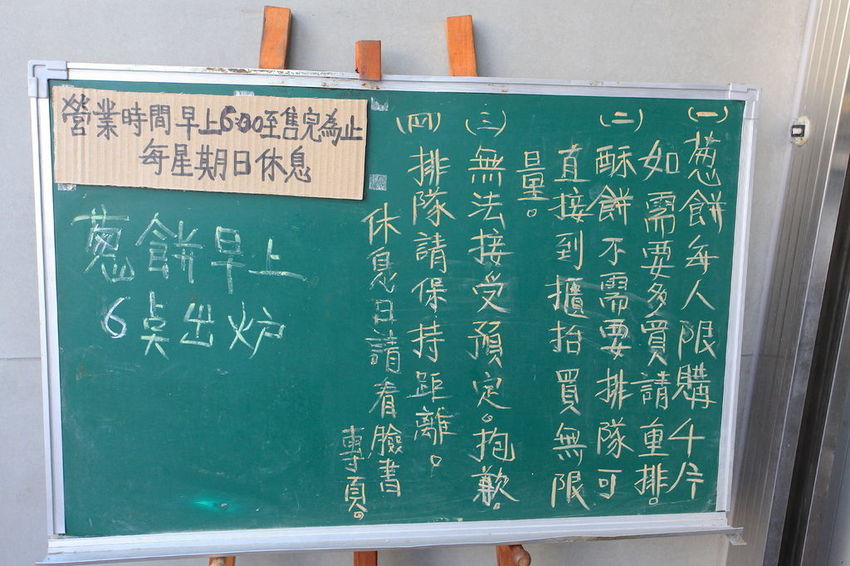 營業時間早上6:00至售完為止
每星期日休息
(一)蔥餅每人限購4片
如需要多買請重排。
(二)酥餅不需要排隊可
直接到櫃抬買無限
量。
(三)無法接受預定。抱歉。
(四)排隊請保持距離。
休息日請看臉書
專頁。
蔥餅早上
6點出炉